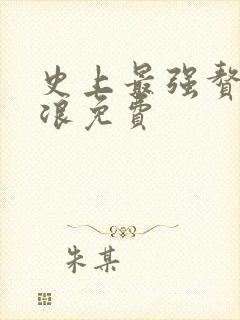 史上最强赘
浪免费
朱某